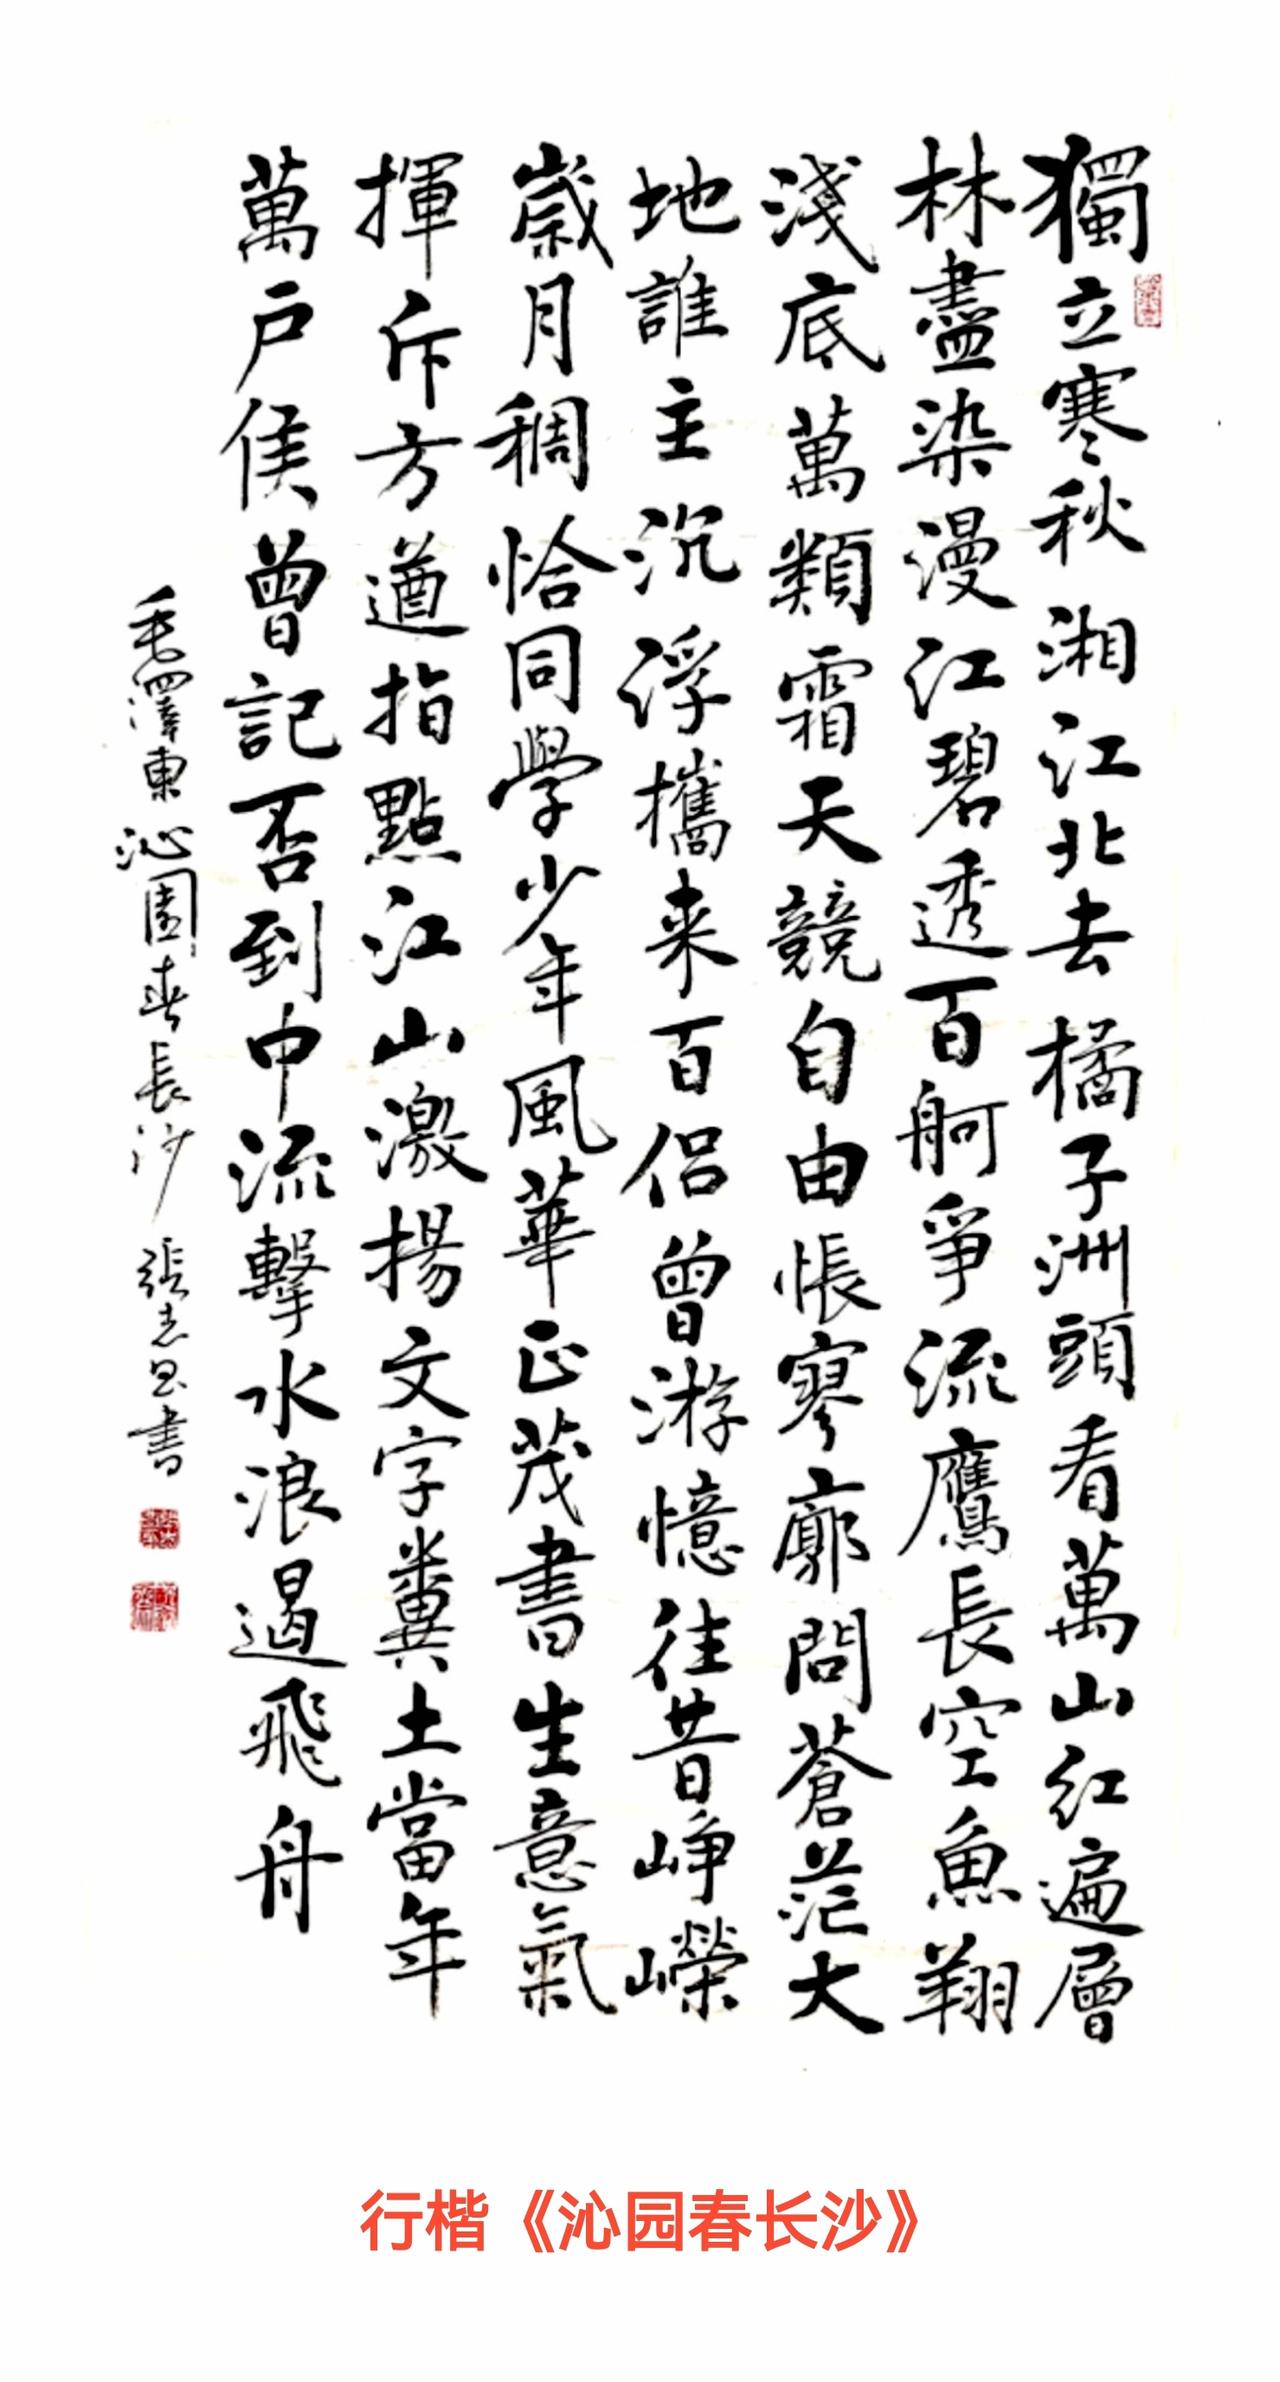 獨立寒秋湘江北去橘子洲頭看萬山紅遍層
林盡染漫江碧透百舸爭流鷹長空魚翔
淺底萬類霜天競自由悵寥廓問蒼茫大
地誰主沉浮攜来百侣曾游憶往昔崢嶸
歲月稠恰同學少年風華正茂書生意氣
揮斥方遒指點江山激揚文字糞土當年
萬户侯曾記否到中流擊水浪遏飛舟
毛澤東沁園春長沙張志书書
行楷《沁园春长沙》